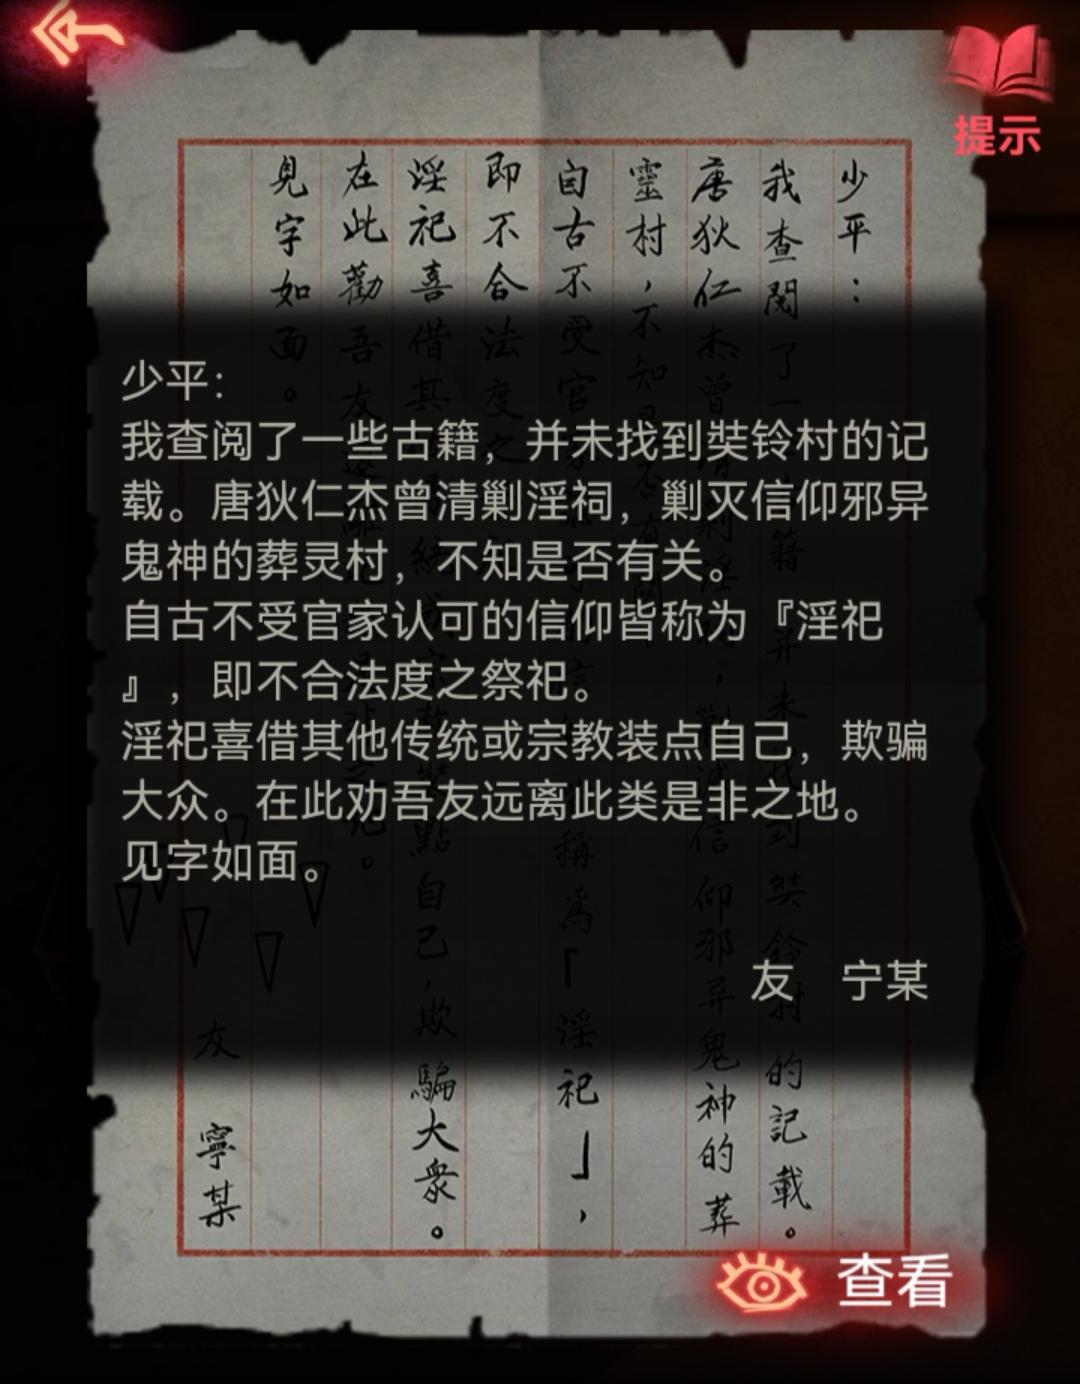 提示
少平：
我查阅了一些古籍，并未找到奘铃村的记
载。唐狄仁杰曾清剿淫祠，剿灭信仰邪异
鬼神的葬灵村，不知是否有关。
自古不受官家认可的信仰皆称为『淫祀
』，即不合法度之祭祀。
淫祀喜借其他传统或宗教装点自己，欺骗
大众。在此劝吾友远离此类是非之地。
见字如面。
友　宁某
查看